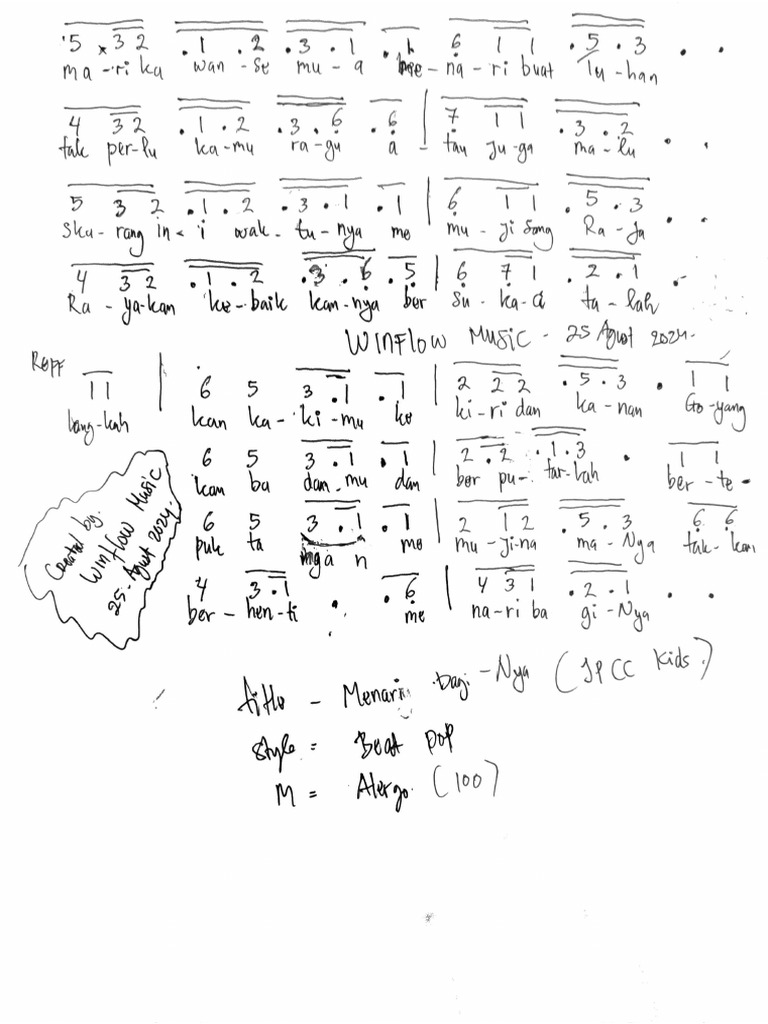 5 3 2 . 1 . 2 . 3 . 1 . 1 6 1 1 . 5 . 3 . .
ma - ri ka wan - se mu - a me - na - ri buat Tu - han
4 3 2 . 1 . 2 . 3 . 6 . 6 | 7 1 1 . 3 . 2 . .
tak per - lu ka - mu ra - gu a - tau ju - ga ma - lu
5 3 2 . 1 . 2 . 3 . 1 . 1 | 6 1 1 . 5 . 3 . .
Sku - rang in - i wak - tu - nya me mu - ji Sang Ra - Ja
4 3 2 . 1 . 2 . 3 . 6 . 5 | 6 7 1 . 2 . 1 .
Ra - ya-kan ke - baik kan-nya ber su - ka-ci ta - lah
WINFLOW MUSIC - 25 Agust 2024.
Reff
1 1 | 6 5 3 . 1 . 1 | 2 2 2 . 5 . 3 . 1 1
bang-kah kan ka - ki - mu ke ki - ri dan ka - nan Go-yang
6 5 3 . 1 . 1 | 2 . 2 . 1 . 3 . 1 1
kan ba dan - mu dan ber pu - tar-lah ber - te -
6 5 3 . 1 . 1 | 2 1 2 . 5 . 3 . 6 6
puk ta nga n me mu - ji-na ma - Nya tak - kan
4 3 . 1 . . 6 | 4 3 1 . 2 . 1 . .
ber - hen - ti me na - ri ba gi - Nya
Created by.
Winflow Music
25 - Agust 2024.
title - Menari Bagi - Nya (JPCC Kids)
Style = Beat Pop
M = Alergo (100)